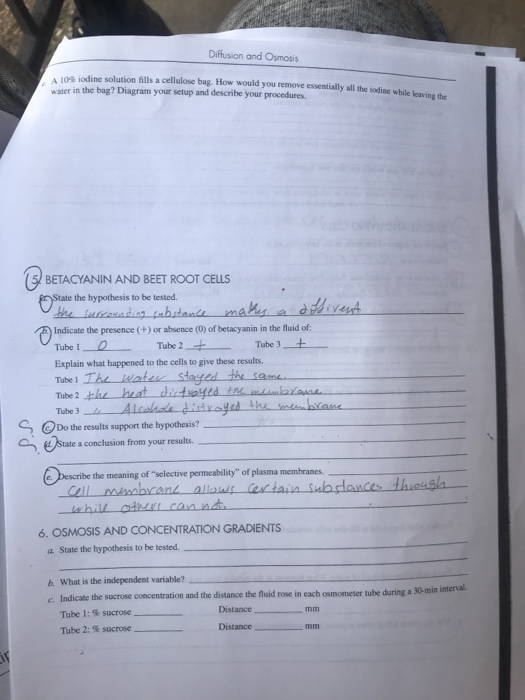 Diffusion and Osmosis
A 10% iodine solution fills a cellulose bag. How would you remove essentially all the iodine while leaving the
water in the bag? Diagram your setup and describe your procedures.
5. BETACYANIN AND BEET ROOT CELLS
a. State the hypothesis to be tested.
the surrounding substance makes a differvent
b. Indicate the presence (+) or absence (0) of betacyanin in the fluid of:
Tube 1 0 Tube 2 + Tube 3 +
Explain what happened to the cells to give these results.
Tube 1 The water stayed the same.
Tube 2 the heat the membrane
Tube 3 the membrane
c. Do the results support the hypothesis?
d. State a conclusion from your results.
e. Describe the meaning of "selective permeability" of plasma membranes.
Cell membrane allows certain substances through
while others can not.
6. OSMOSIS AND CONCENTRATION GRADIENTS
a. State the hypothesis to be tested.
b. What is the independent variable?
c. Indicate the sucrose concentration and the distance the fluid rose in each osmometer tube during a 30-min interval.
Tube 1: % sucrose Distance mm
Tube 2: % sucrose Distance mm